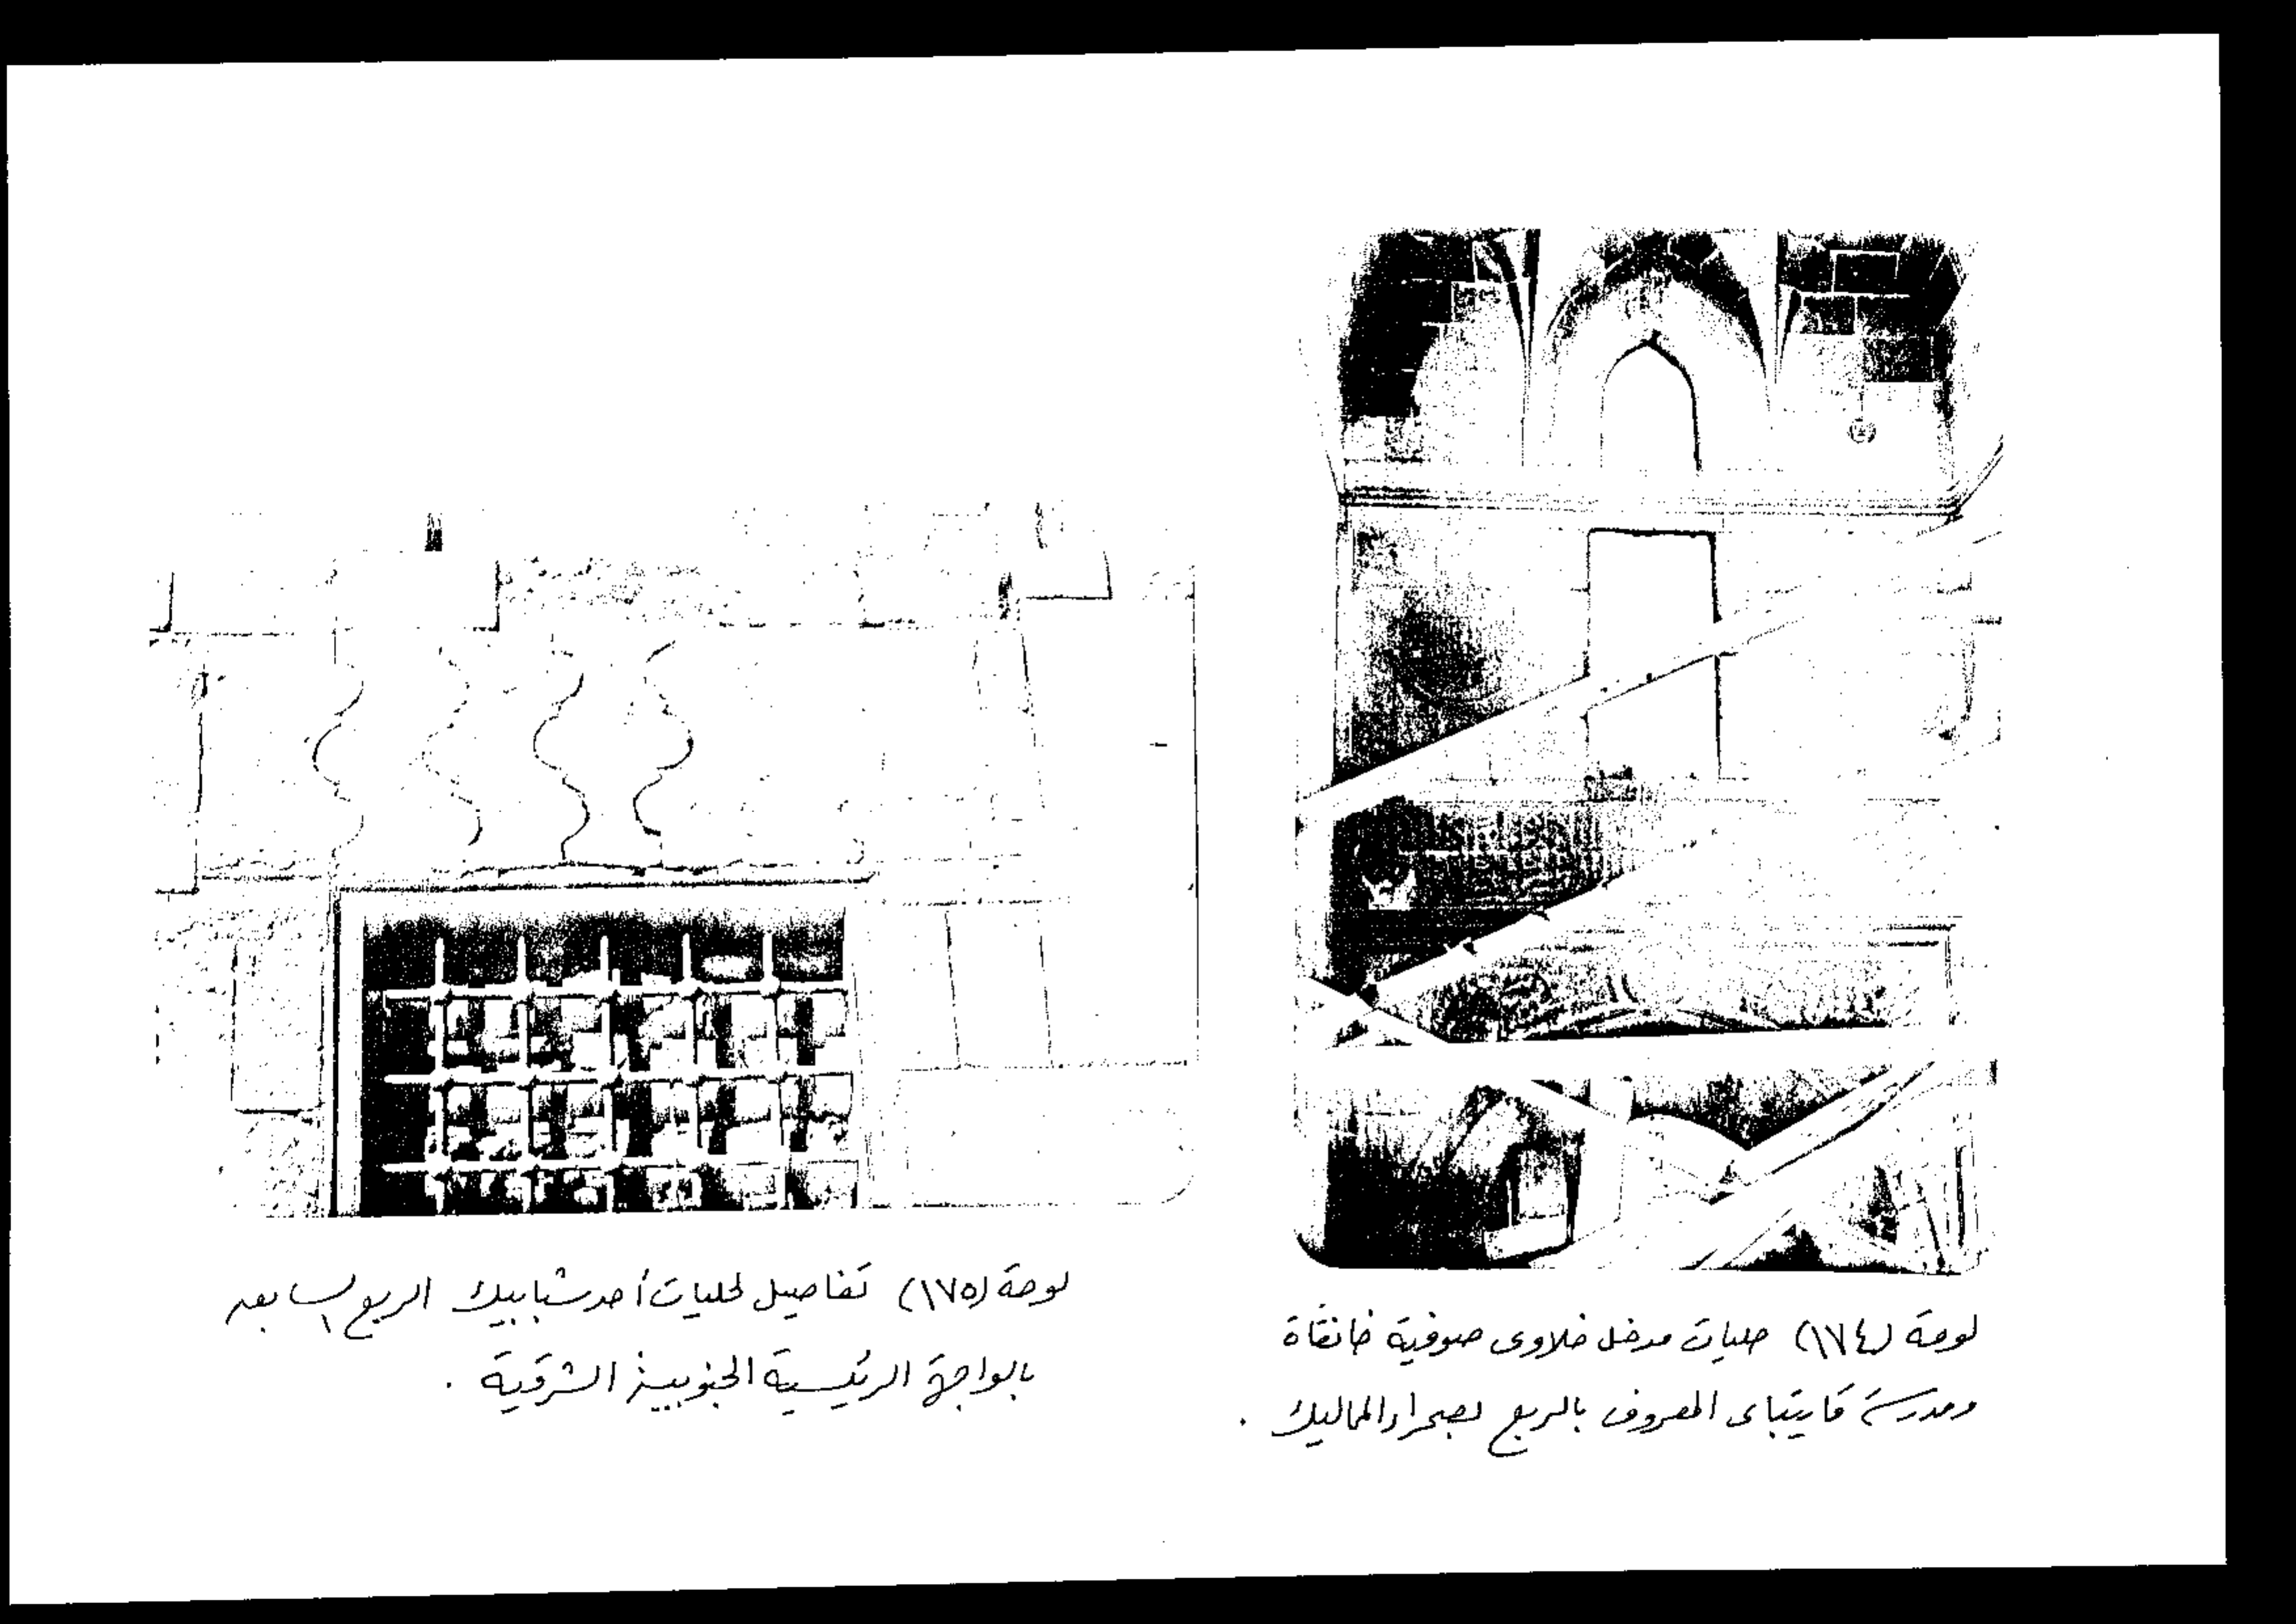 لوحة (١٧٤) حليات مدخل خلاوى صوفية خانقاة
ومدرسة قايتباى المعروف بالربع بصحراء المماليك .
لوحة (١٧٥) تفاصيل لحليات أحد شبابيك الربع السابق
بالواجهة الرئيسية الجنوبية الشرقية .